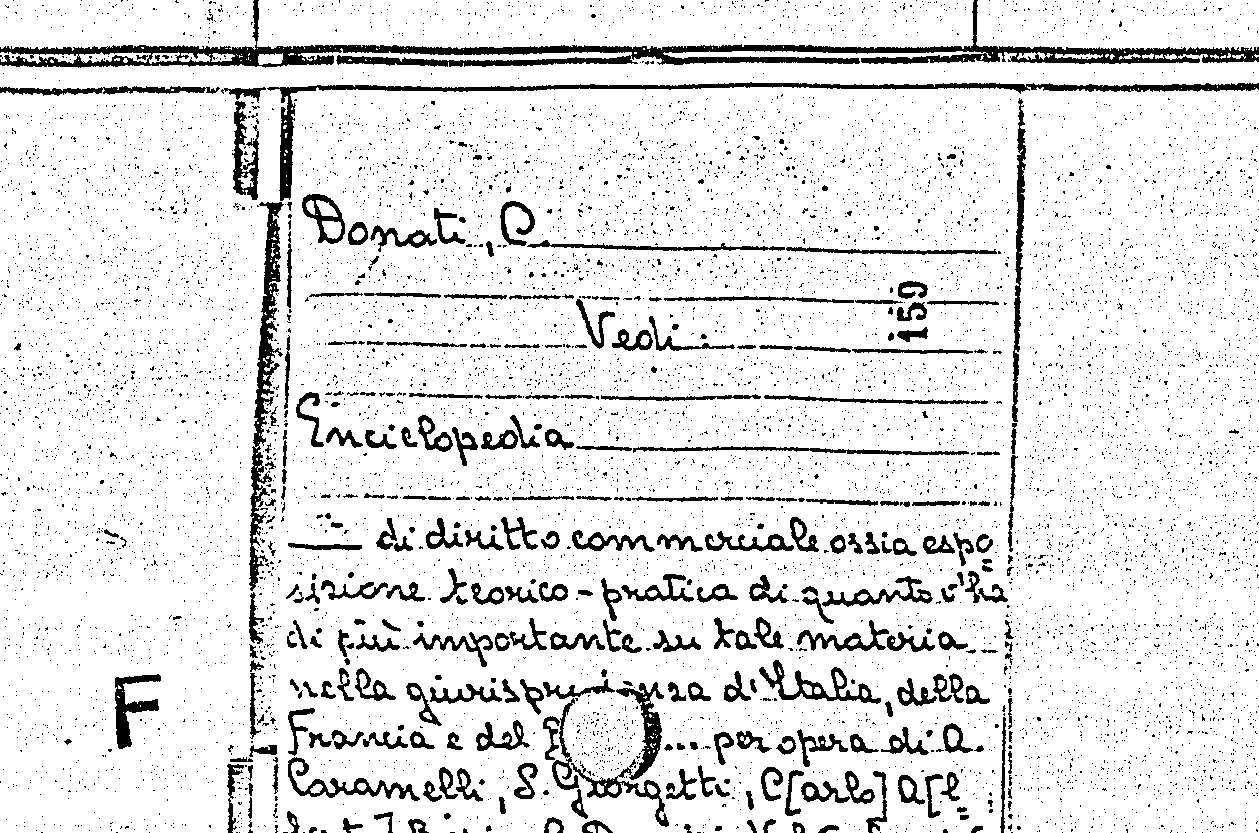 Donati, C.
159
Vedi:
Enciclopedia
— di diritto commerciale ossia espo=
sizione teorico-pratica di quanto v'ha
di più importante su tale materia
nella d'Italia, della
Francia e del ... per opera di A.
Caramelli, S. Giorgetti, C[arlo] A[l=
F